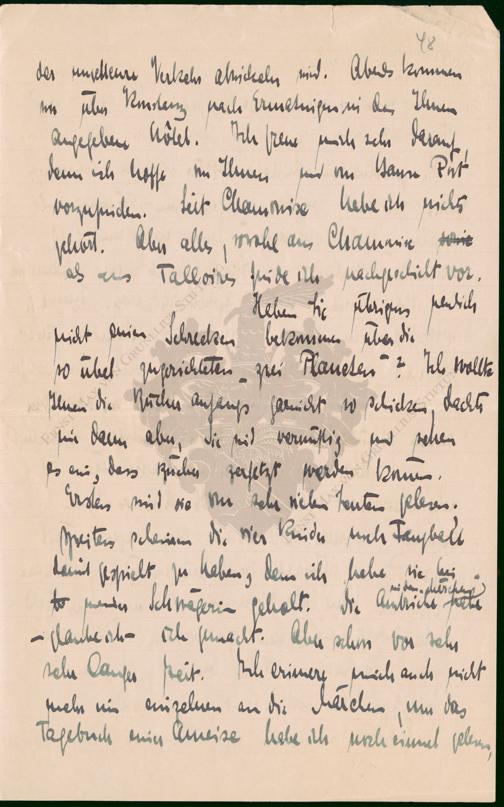 48
der ungeheure Verkehr abwickeln wird. Abends kommen
wir über Konstanz nach Ermatingen in das Ihnen
angegebene Hôtel. Ich freue mich sehr darauf,
denn ich hoffe von Ihnen und von Hause Post
vorzufinden. Seit Chamonix habe ich nichts
gehört. Aber alles, sowohl aus Chamonix
als aus Talloires finde ich nachgeschickt vor.
Haben Sie übrigens neulich
nicht einen Schrecken bekommen über die
so übel zugerichteten "zwei Planeten"? Ich wollte
Ihnen die Bücher anfangs garnicht so schicken, dachte
mir dann aber, Sie sind vernünftig und sehen
es ein, dass Bücher zerfetzt werden können.
Erstens sind sie von sehr vielen Leuten gelesen.
Zweitens scheinen die vier Kinder noch Fangball
damit gespielt zu haben, denn ich habe sie bei
meiner Schwägerin geholt. Die Anstriche
in den Märchen
– glaube ich – ich gemacht. Aber schon vor sehr
sehr langer Zeit. Ich erinnere mich auch nicht
mehr im einzelnen an die Märchen, nur das
Tagebuch einer Ameise habe ich noch einmal gelesen,
ERNST MORITZ